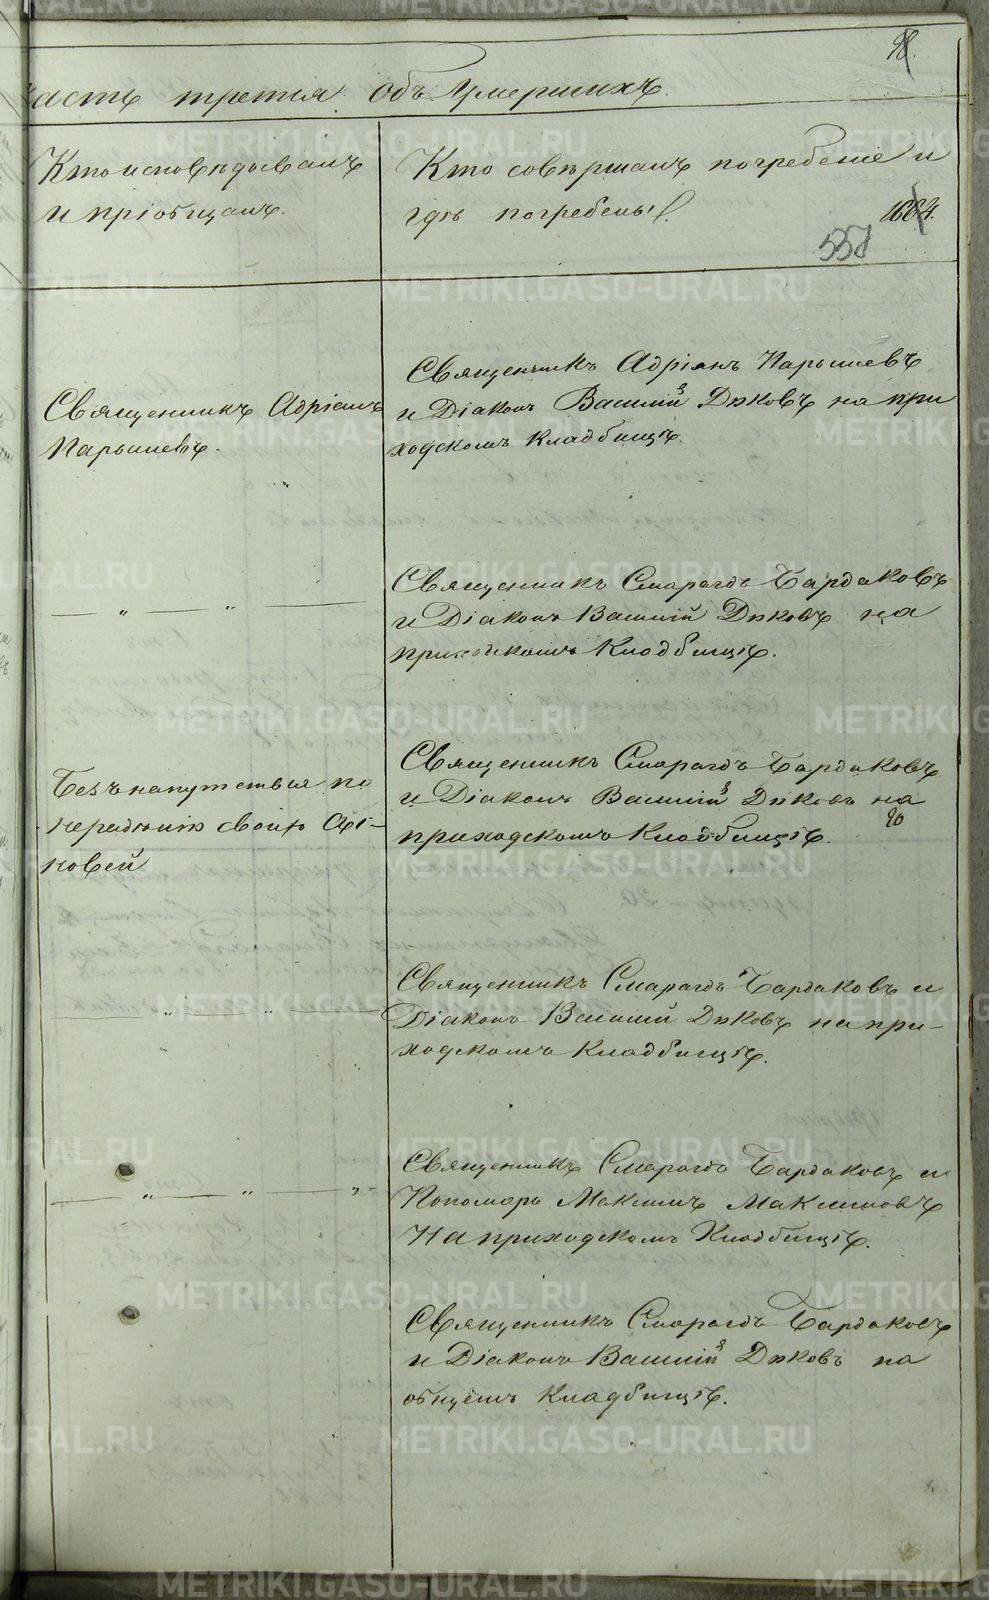 98.
часть третія объ Умершихъ.
Кто исповѣдовалъ
и пріобщалъ.
Кто совѣршалъ погребеніе и
гдѣ погребены.
1664.
557
Священникъ Адріанъ
Парышевъ.
Священникъ Адріанъ Парышевъ
и Діаконъ Василій Дѣковъ на при
ходскомъ кладбищѣ.
— „ — „ —
Священникъ Смарагдъ Бардаковъ
и Діаконъ Василій Дѣковъ на
приходскомъ Кладбищѣ.
Безъ напутствія по
нерадѣнію своихъ
новей
Священникъ Смарагдъ Бардаковъ
и Діаконъ Василій Дѣковъ на
приходскомъ Кладбищѣ.
— „ — „ —
Священникъ Смарагдъ Бардаковъ и
Діаконъ Василій Дѣковъ на при-
ходскомъ Кладбищѣ.
— „ — „ — „ -
Священникъ Смарагдъ Бардаковъ и
Пономарь Максимъ Максимовъ
На приходскомъ Кладбищѣ.
Священникъ Смарагдъ Бардаковъ
и Діаконъ Василій Дѣковъ на
общемъ Кладбищѣ.
METRIKI.GASO-URAL.RU